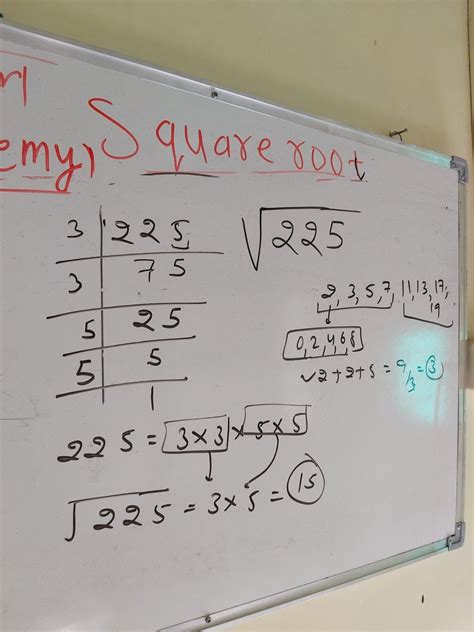 emy) Square root
3 | 225
3 | 75
5 | 25
5 | 5
1
√225
2, 3, 5, 7, 11, 13, 17,
19
0,2,4,6,8
✓2+2+5 = 9/3 = 3
225 = 3×3 × 5×5
√225 = 3×5 = 15